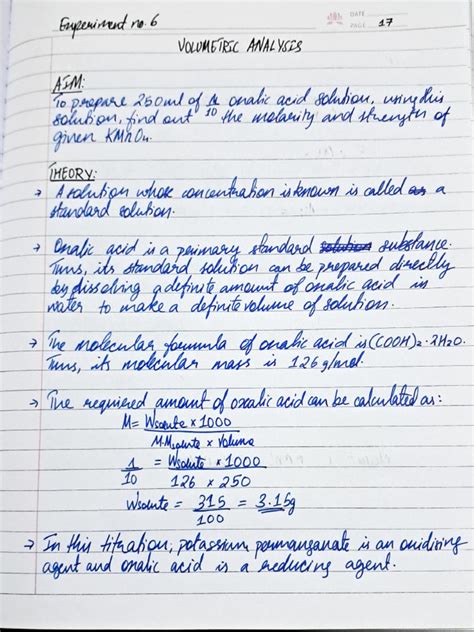 Experiment no. 6
DATE
PAGE 17
VOLUMETRIC ANALYSIS
AIM:
To prepare 250ml of 1/10 oxalic acid solution, using this
solution, find out the molarity and strength of
given KMnO4.
THEORY:
→ A solution whose concentration is known is called as a
standard solution.
→ Oxalic acid is a primary standard solution substance.
Thus, its standard solution can be prepared directly
by dissolving a definite amount of oxalic acid in
water to make a definite volume of solution.
→ The molecular formula of oxalic acid is (COOH)2·2H2O.
Thus, its molecular mass is 126 g/mol.
→ The required amount of oxalic acid can be calculated as:
M = Wsolute × 1000
M.Msolute × Volume
1 = Wsolute × 1000
10 126 × 250
Wsolute = 315 = 3.15g
100
→ In this titration, potassium permanganate is an oxidising
agent and oxalic acid is a reducing agent.